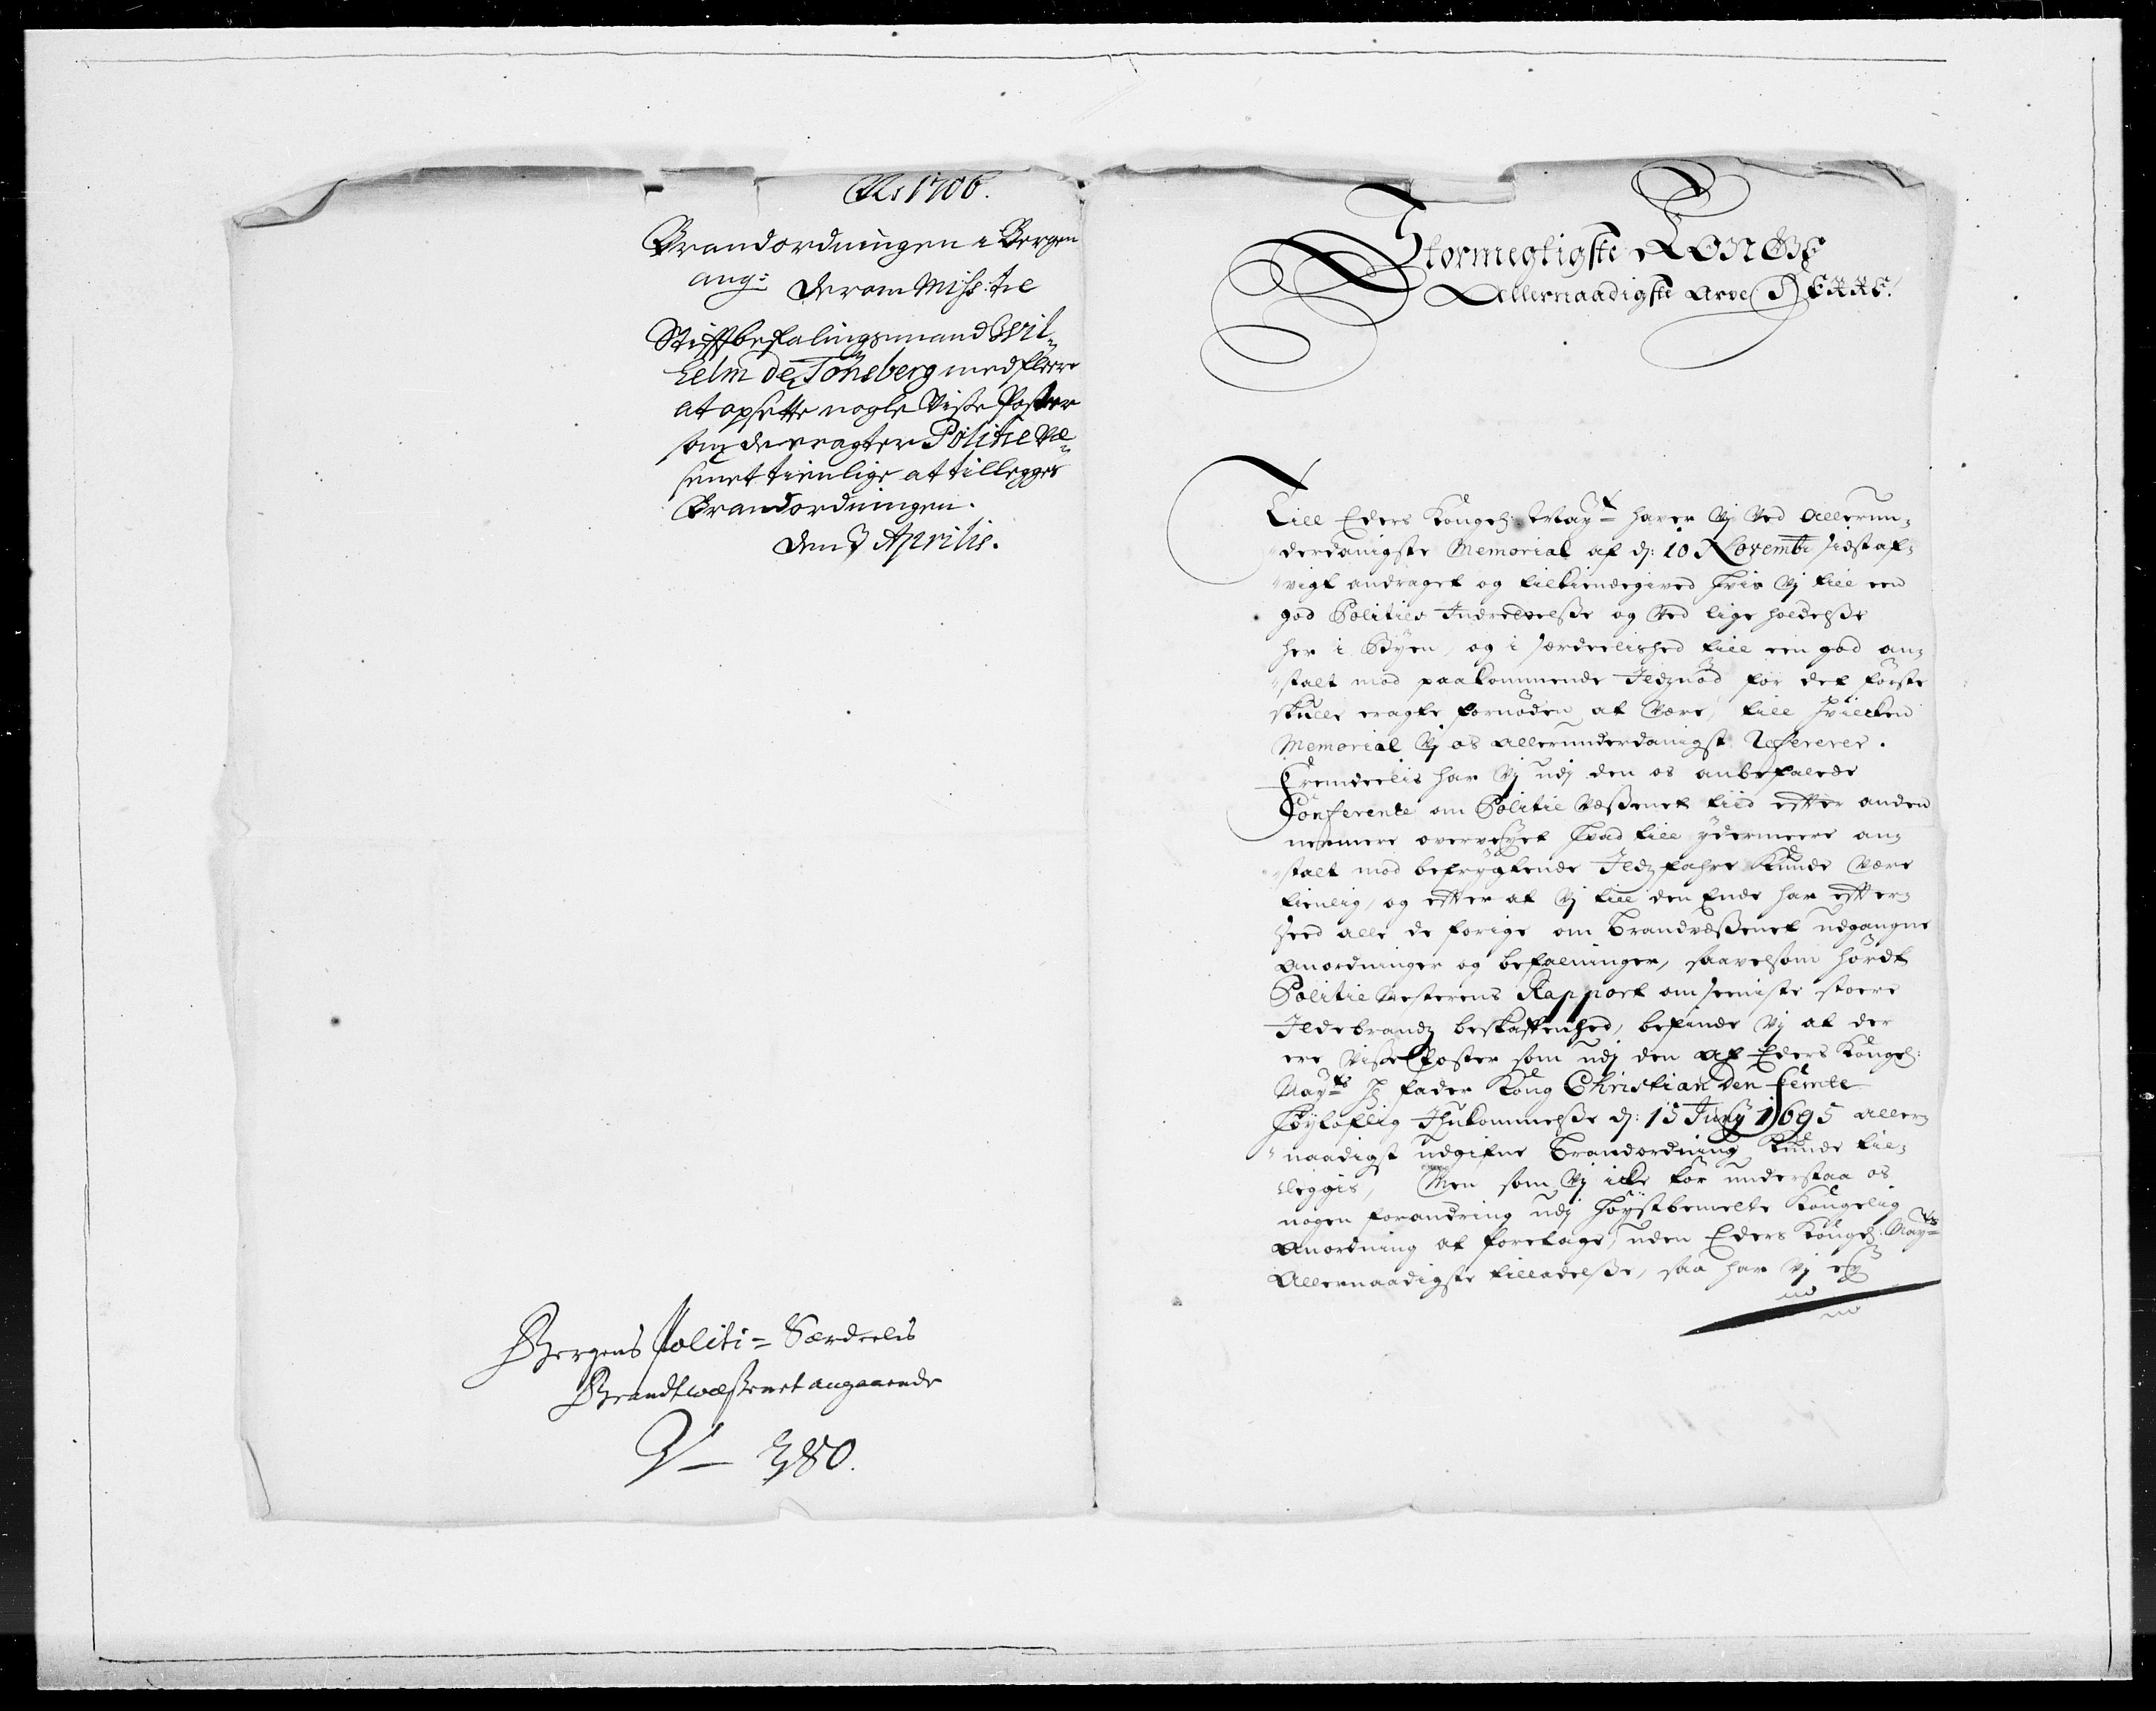 Ao 1706.
Brandordningen i Bergen
ang: derom Miss:tie
Stifftbefalingsmand Wil¬
helm de Tönsberg med flere
at opsette nogle Visse Poster
som de eragter Politie Væ¬
senet tienlige at tillegges
Brandordningen.
den 3 Aprilis.
Bergens Politi= Særdeelis
Brandtwæssenet angaaende
380.
Stormegtigste KONGE
Allernaadigste Arve HERRE!
Till Eders Kongel: Mayt haver Vj Ved Allerun¬
derdanigste Memorial af d: 10 Novembr sidst af¬
vigt andraget og tilkiendegived hvis Vj till een
god Polities Indrettelsse og Ved lige holdelsse
her i Byen, og i særdeelished till een god an¬
stalt mod paakommende Ildznöd for det förste
skulle eragte fornöden at Være, till hvilcken
Memorial Vj os allerunderdanigst Refererer.
Fremdeelis har Vj udj den os anbefalede
Conferente om Politie Væssenet tiid efter anden
nermere overveyet hvad till ydermeere an¬
stalt mod befrygtende Ildz fahre kunde Være
tienlig, og efter at Vj till den Ende har efter¬
seed alle de forige om Brandvæssenet udgangne
anordninger og befalninger, saavelsom hördt
Politie Mesterens Rapport om seeniste stoere
Ildebrandz beskaffenhed, befinde Vj at der
ere Visse Poster som udj den af Eders Kongel:
Mayts Hr Fader Kong Christian den femte
Höyloflig Ihukommelsse d: 15 Junij 1695 aller¬
naadigst udgifne Brandordning kunde til¬
leggis, Men som Vj icke tör understaa os
nogen forandring udj höystbemelte Kongelig
anordning at foretage, uden Eders Kongel: Mayts
Allernaadigste tilladelsse, saa har Vj ey